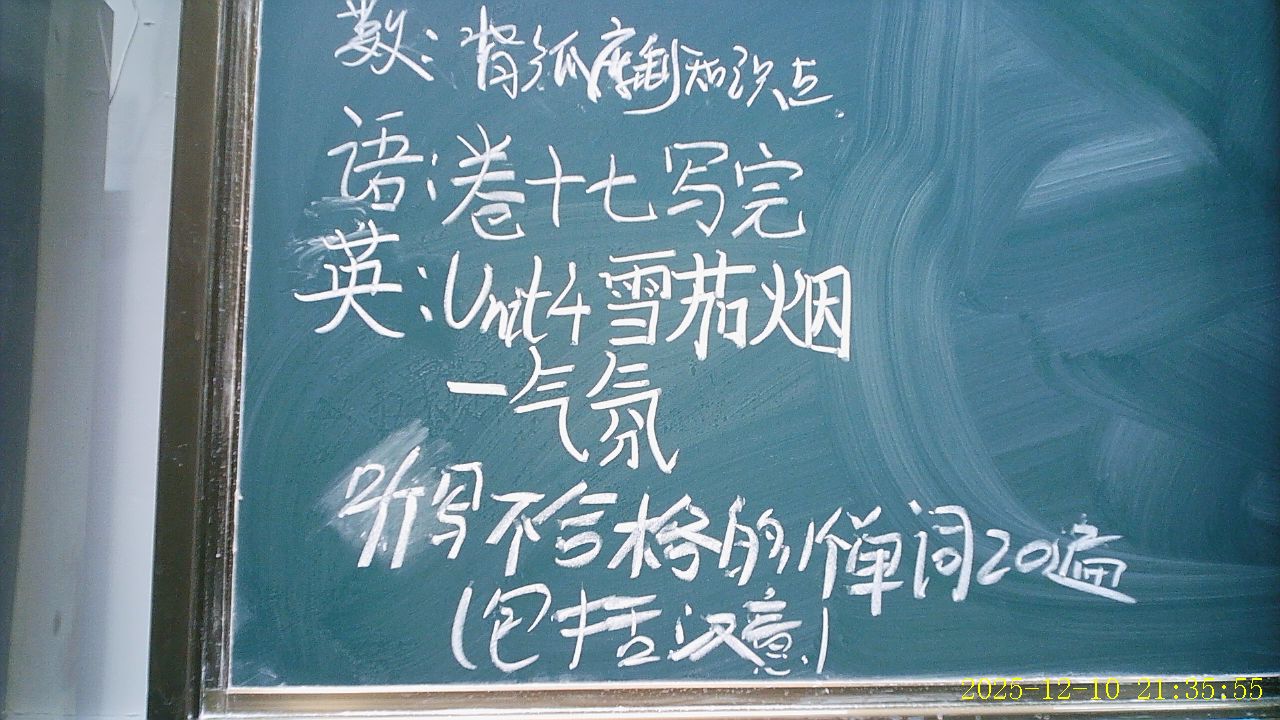 数:背弧度制知识点.
语:卷十七写完
英:Unit4 雪茄烟
—气氛
听写不合格的单词20遍
(包括汉意)
2025-12-10 21:35:55